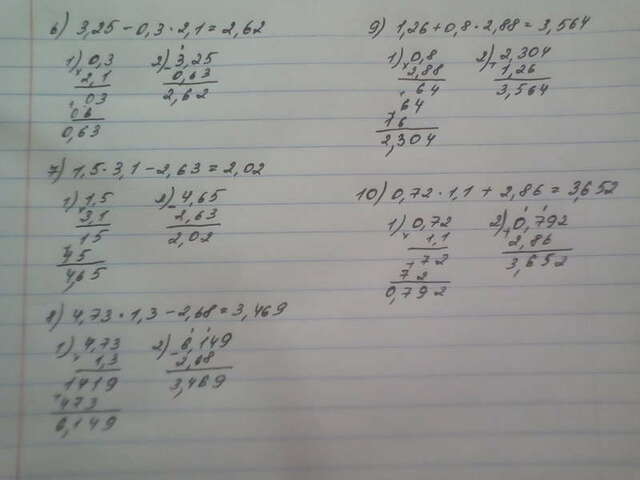 6) 3,25 - 0,3 · 2,1 = 2,62
1) 0,3
× 2,1
03
+ 06
0,63
2) 3,25
- 0,63
2,62
7) 1,5 · 3,1 - 2,63 = 2,02
1) 1,5
× 3,1
15
+ 45
4,65
2) 4,65
- 2,63
2,02
8) 4,73 · 1,3 - 2,68 = 3,469
1) 4,73
× 1,3
1419
+ 473
6,149
2) 6,149
- 2,68
3,469
9) 1,26 + 0,8 · 2,88 = 3,564
1) 0,8
× 2,88
64
+ 64
16
2,304
2) 2,304
+ 1,26
3,564
10) 0,72 · 1,1 + 2,86 = 3,652
1) 0,72
× 1,1
72
+ 72
0,792
2) 0,792
+ 2,86
3,652